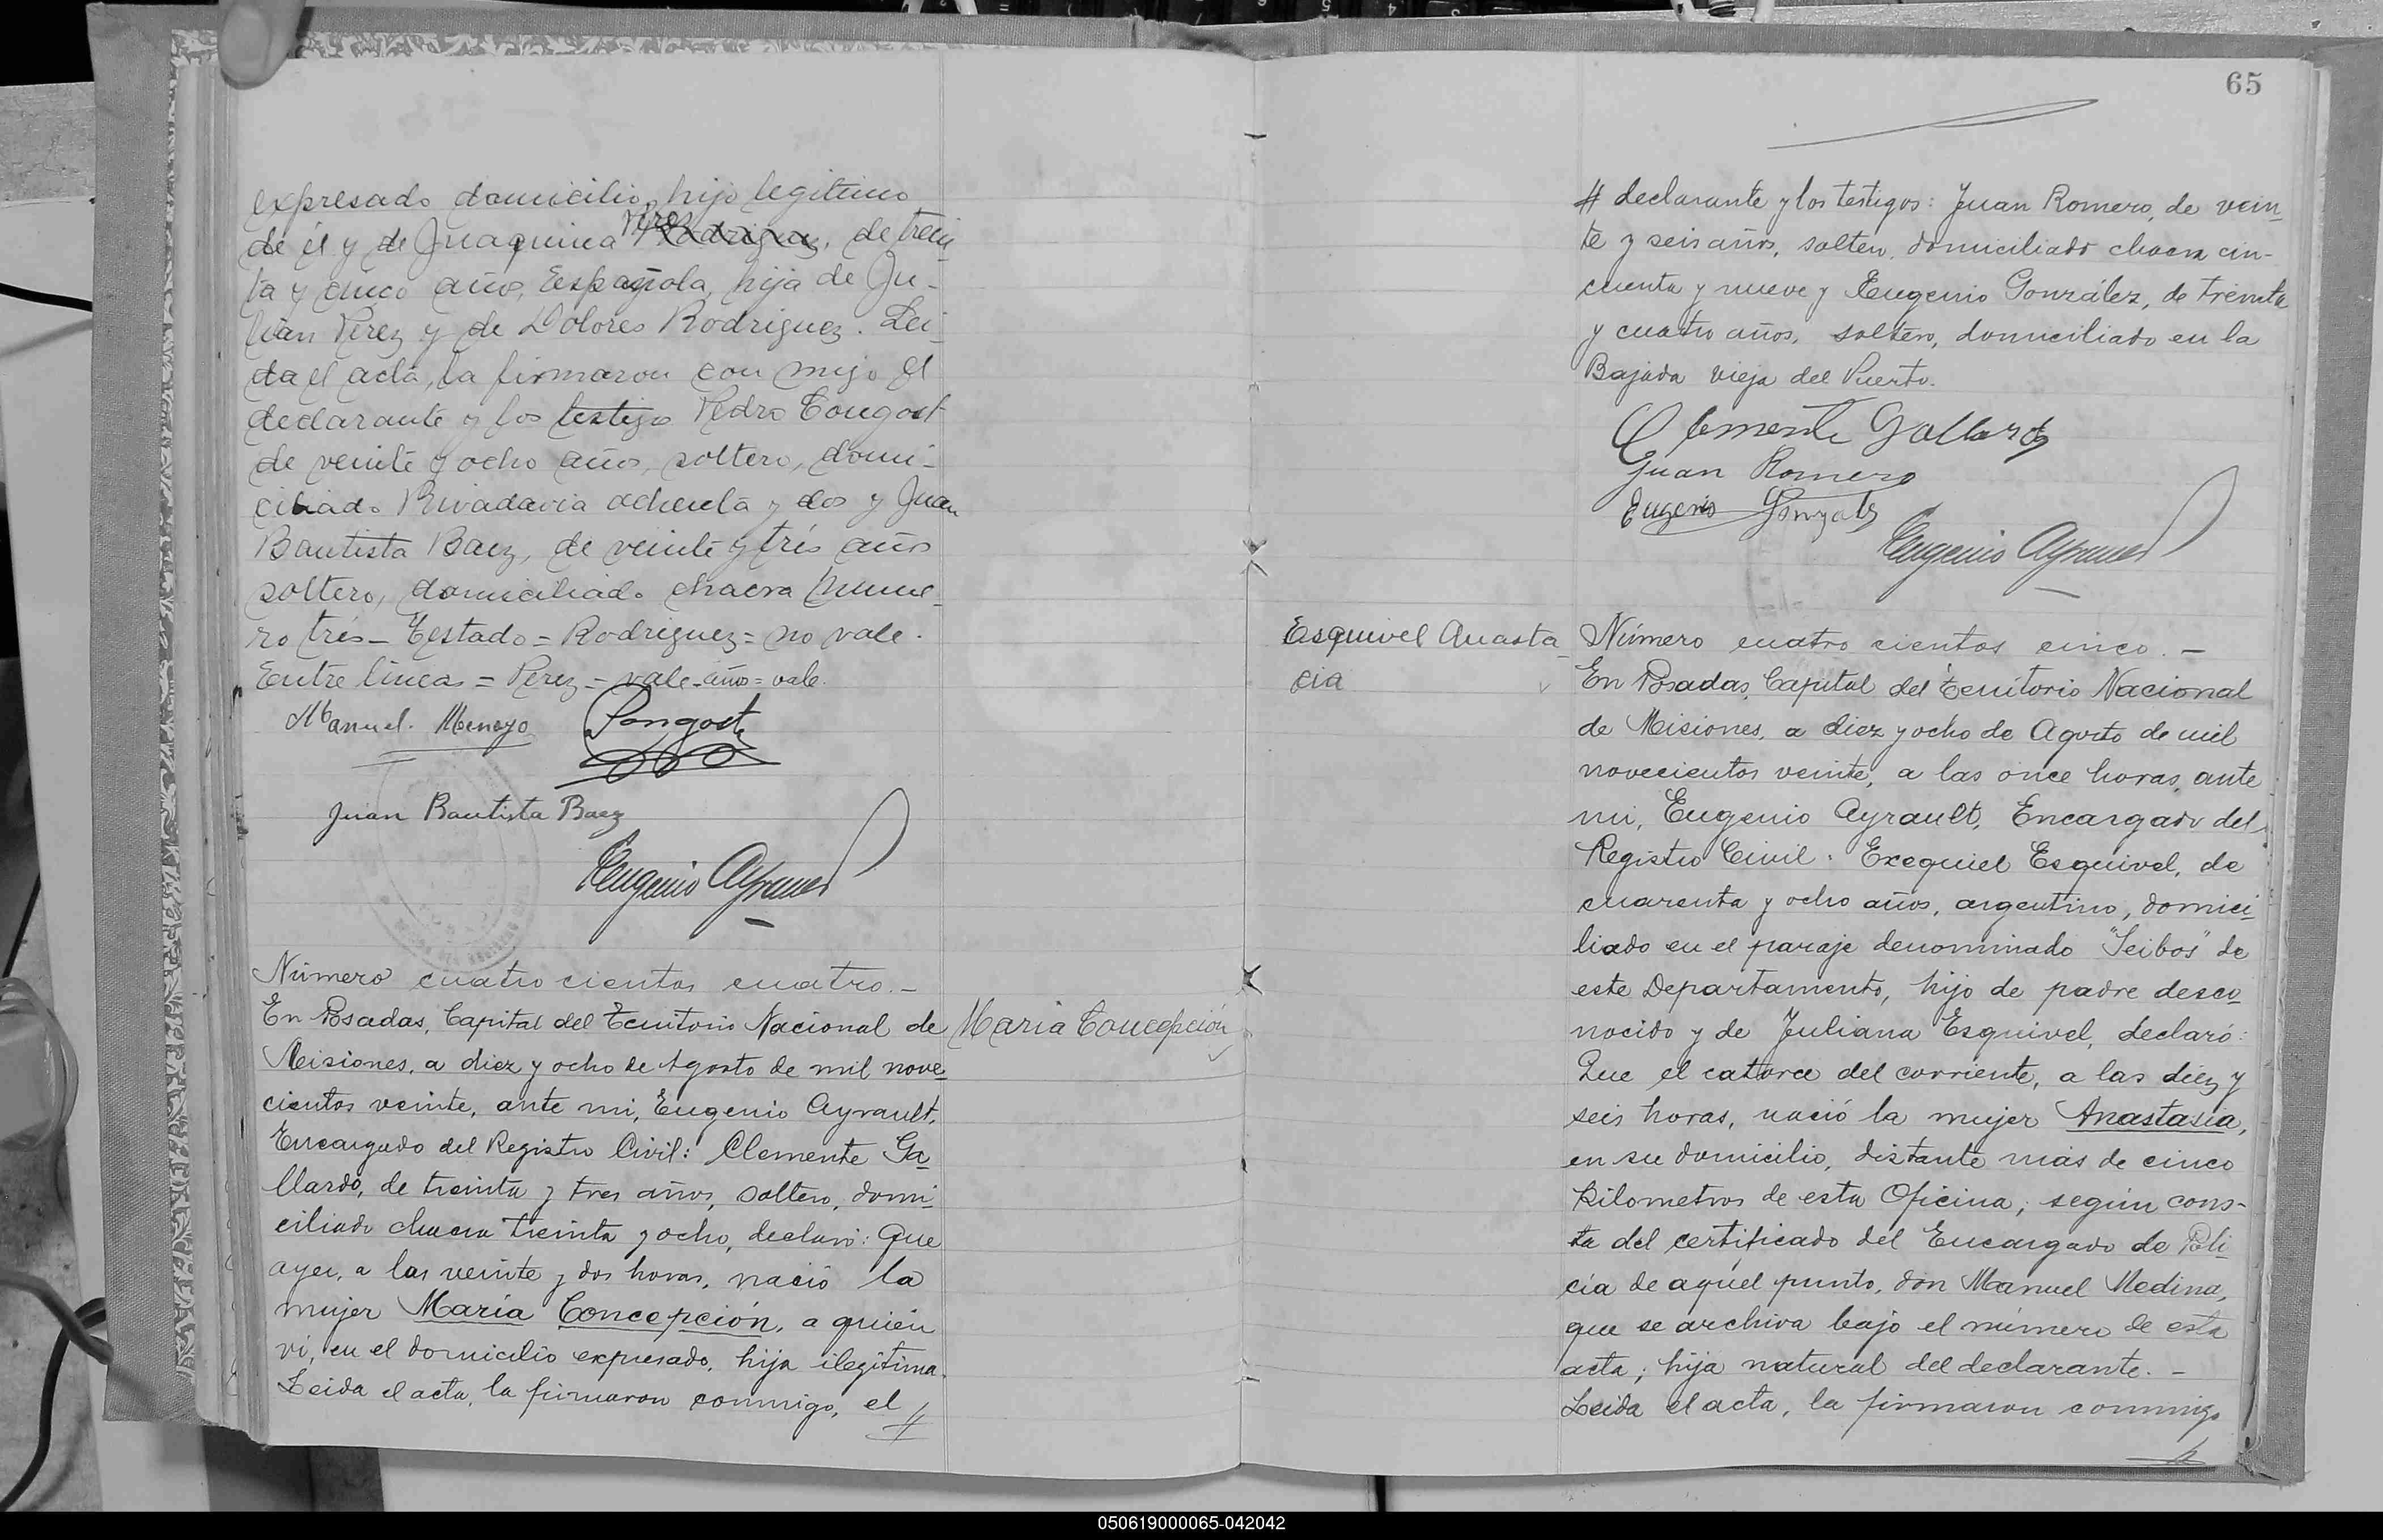 expresado domicilio, hijo legitimo
Perez
de él y de Juaquina Rodriguez, de trein
ta y cinco años, Española, hija de Ju-
lian Pérez y de Dolores Rodriguez. Lei-
da el acta, la firmaron con migo el
declarante y los testigos Pedro Tongost
de veinte y ocho años, soltero, domi-
ciliado Rivadavia ochenta y dos y Juan
Bautista Baez, de veinte y trés años
soltero, domiciliado chacra nume-
ro trés - Testado = Rodriguez = no vale.
Entre lineas = Perez = vale - años = vale.
Manuel. Menoyo
Juan Bautista Baez
Eugenio Ayrault
Número cuatro cientos cuatro. -
En Posadas, Capital del Territorio Nacional de
Maria Concepción
Misiones, a diez y ocho de Agosto de mil nove-
cientos veinte, ante mi, Eugenio Ayrault,
Encargado del Registro Civil: Clemente Ga
llardo, de treinta y tres años, soltero, domi-
ciliado chacra treinta y ocho, declaró: Que
ayer, a las veinte y dos horas, nació la
mujer María Concepción, a quién
ví, en el domicilio expresado, hija ilegítima.
Leida el acta, la firmaron conmigo, el #
65
# declarante y los testigos: Juan Romero, de vein
te y seis años, soltero, domiciliado chacra cin-
cuenta y nueve y Eugenio González, de treinta
y cuatro años, soltero, domiciliado en la
Bajada vieja del Puerto.
Clemente Gallardo
Juan Romero
Eugenio Gonzalez
Eugenio Ayrault
Esquivel Anasta
cia
Número cuatro cientos cinco. -
En Posadas, Capital del Territorio Nacional
de Misiones, a diez y ocho de Agosto de mil
novecientos veinte, a las once horas, ante
mi, Eugenio Ayrault, Encargado del
Registro Civil: Exequiel Esquivel, de
cuarenta y ocho años, argentino, domici
liado en el paraje denominado "Seibos" de
este Departamento, hijo de padre desco
nocido y de Juliana Esquivel, declaró:
Que el catorce del corriente, a las diez y
seis horas, nació la mujer Anastasia,
en su domicilio, distante más de cinco
kilometros de esta Oficina, según cons-
ta del certificado del Encargado de Poli
cía de aquel punto, don Manuel Medina,
que se archiva bajo el número de esta
acta; hija natural del declarante. -
Leida el acta, la firmaron conmigo
050619000065-042042